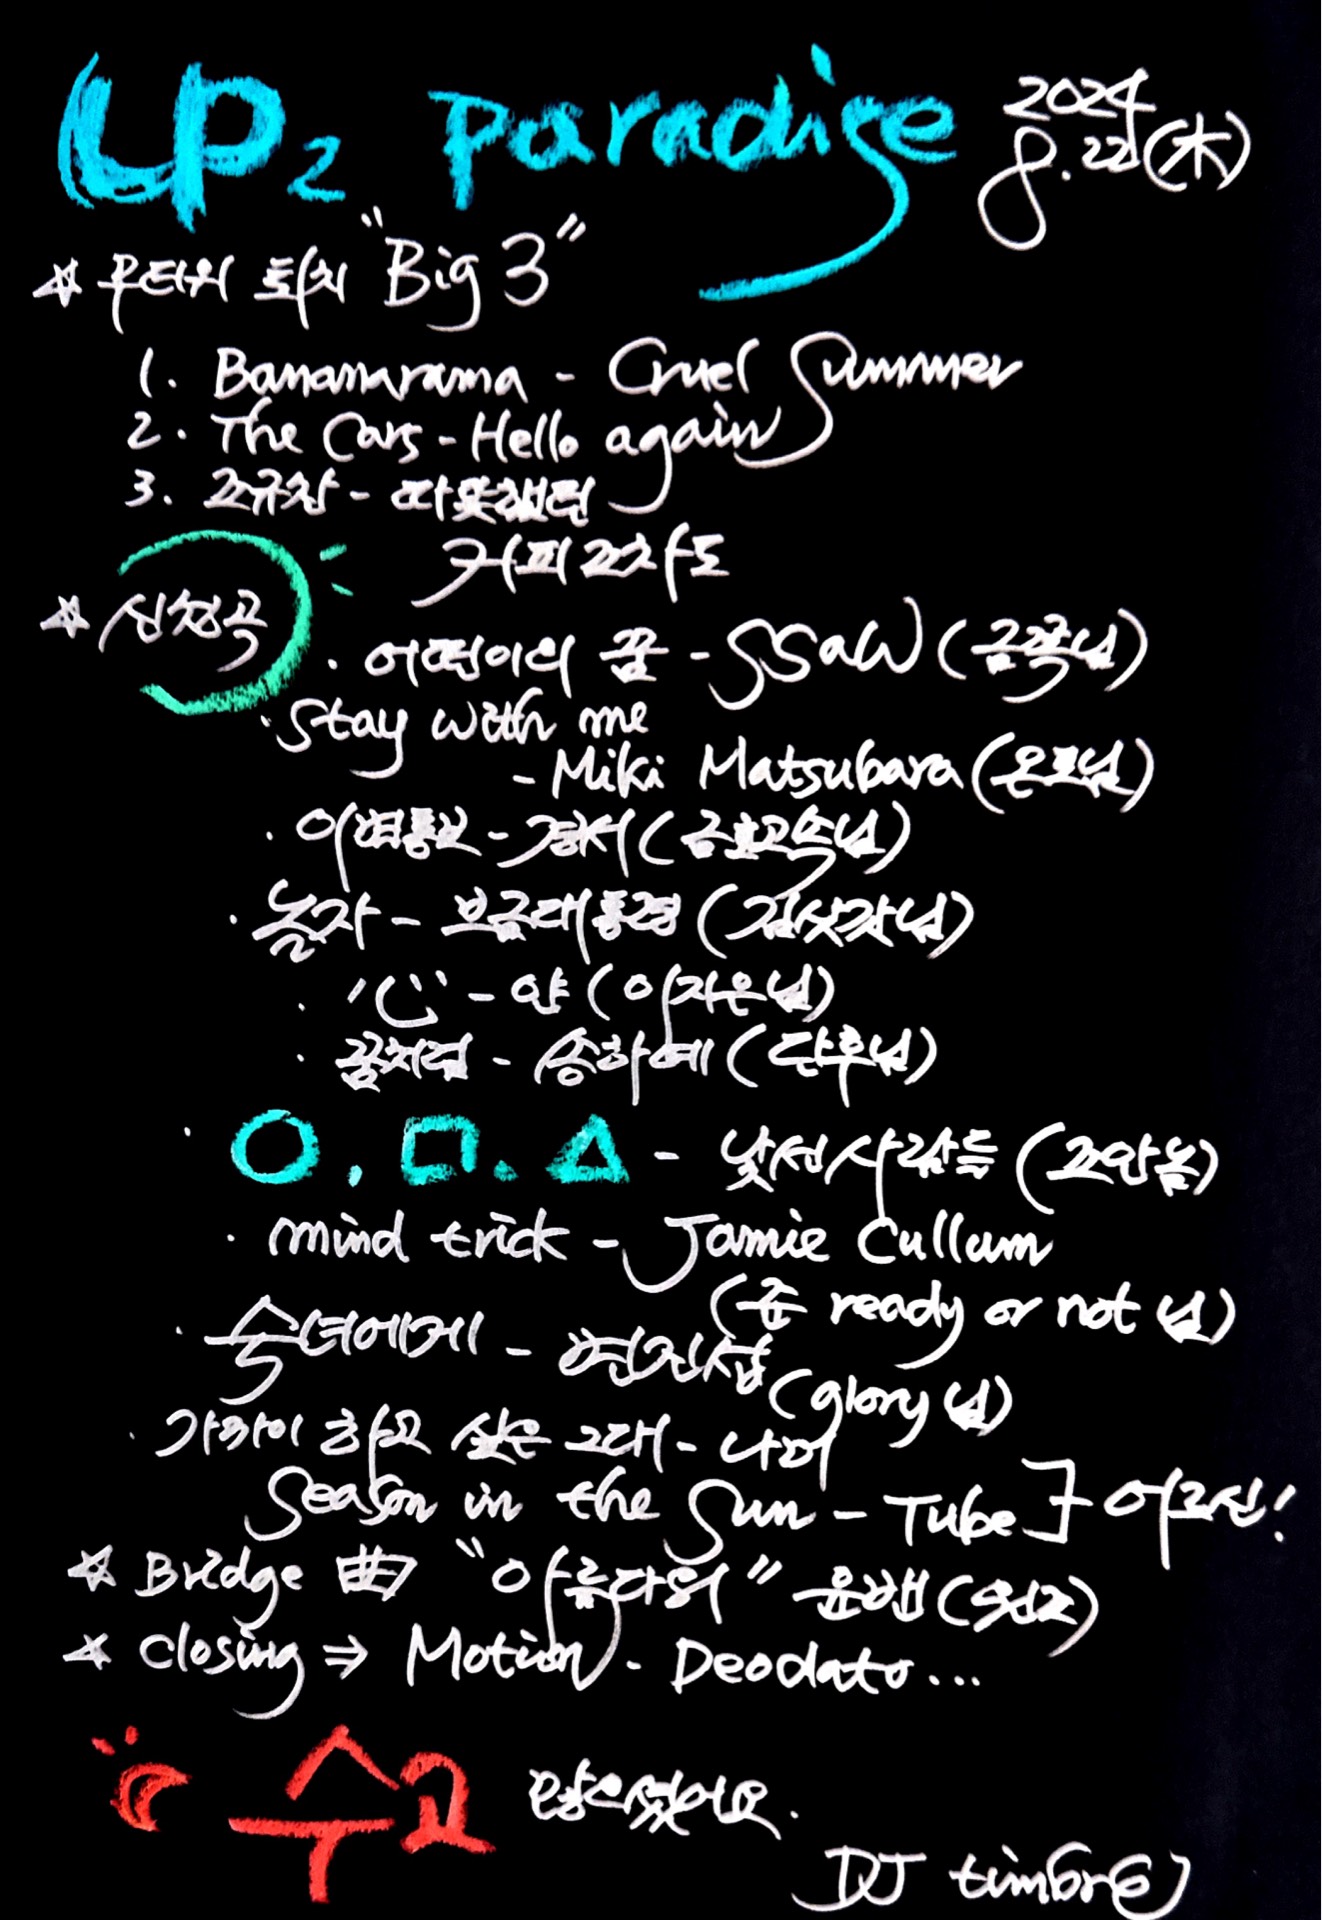 LP2 paradise 2024
8.22(木)
☆ 무더위 퇴치 "Big 3"
1. Bananarama - Cruel Summer
2. The Cars - Hello again
3. 조규찬 - 따뜻했던
커피조차도
☆ 신청곡
· 어떤이의 꿈 - SSaW (금쪽님)
· Stay with me
- Miki Matsubara (온포님)
· 이별통보 - 경서 (금호고속님)
· 놀자 - 보금대통령 (김삿갓님)
· ' - 양 (이지은님)
· 꿈처럼 - 송하예 (단후님)
· ○, □. △ - 낯선사람들 (조안놈)
· mind trick - Jamie Cullum
(준 ready or not 님)
· 숙녀에게 - 변진섭
(glory 님)
· 가까이 하고 싶은 그대 - 나미
Season in the Sun - Tube ] 어르신!
☆ Bridge 曲 "아름다워" 윤수 (원조)
☆ Closing ⇒ Motion - Deodato...
수고 많으셨어요.
DJ timbre